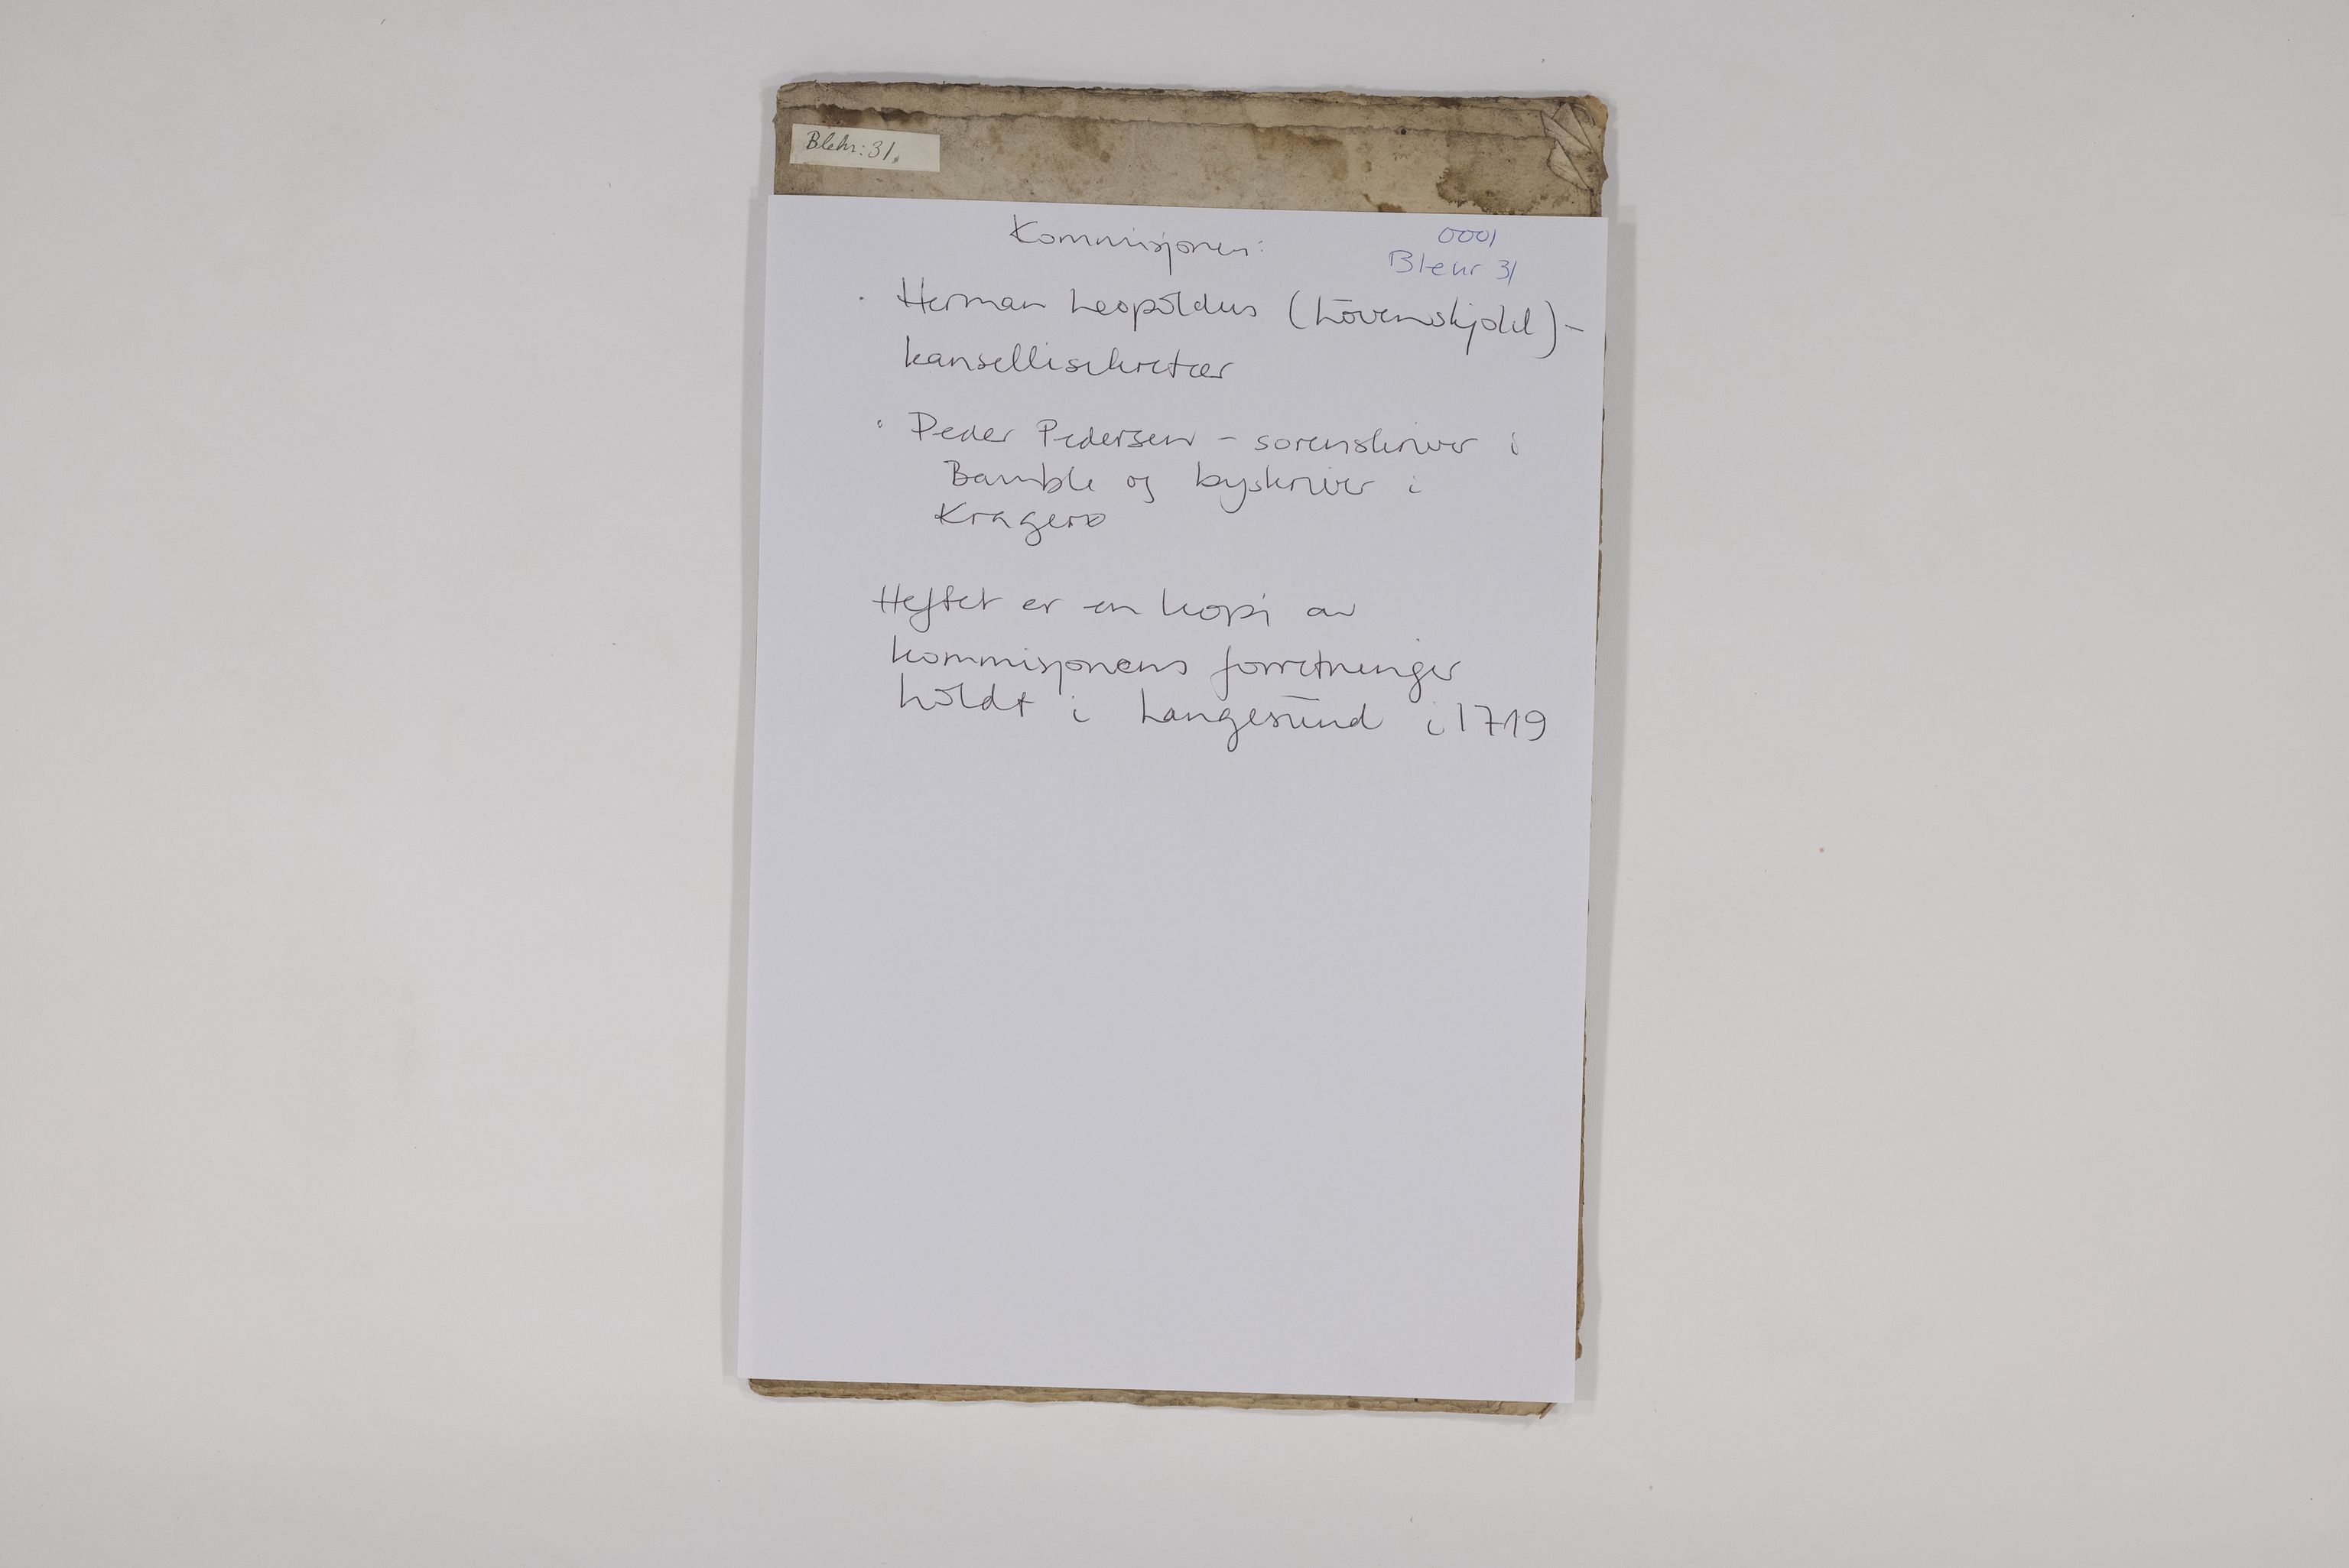 Blehr: 31.
0001
Blehr 31
Kommisjonen:
· Herman Leopoldus (Løvenskjold) -
kansellisekretær
· Peder Pedersen - sorenskriver i
Bamble og byskriver i
Kragerø
Heftet er en kopi av
kommisjonens forretninger
holdt i Langesund i 1719